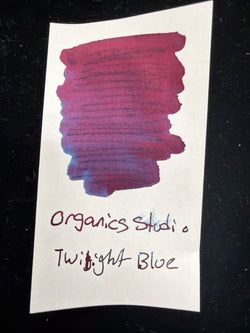 Organics Studio
Twilight Blue